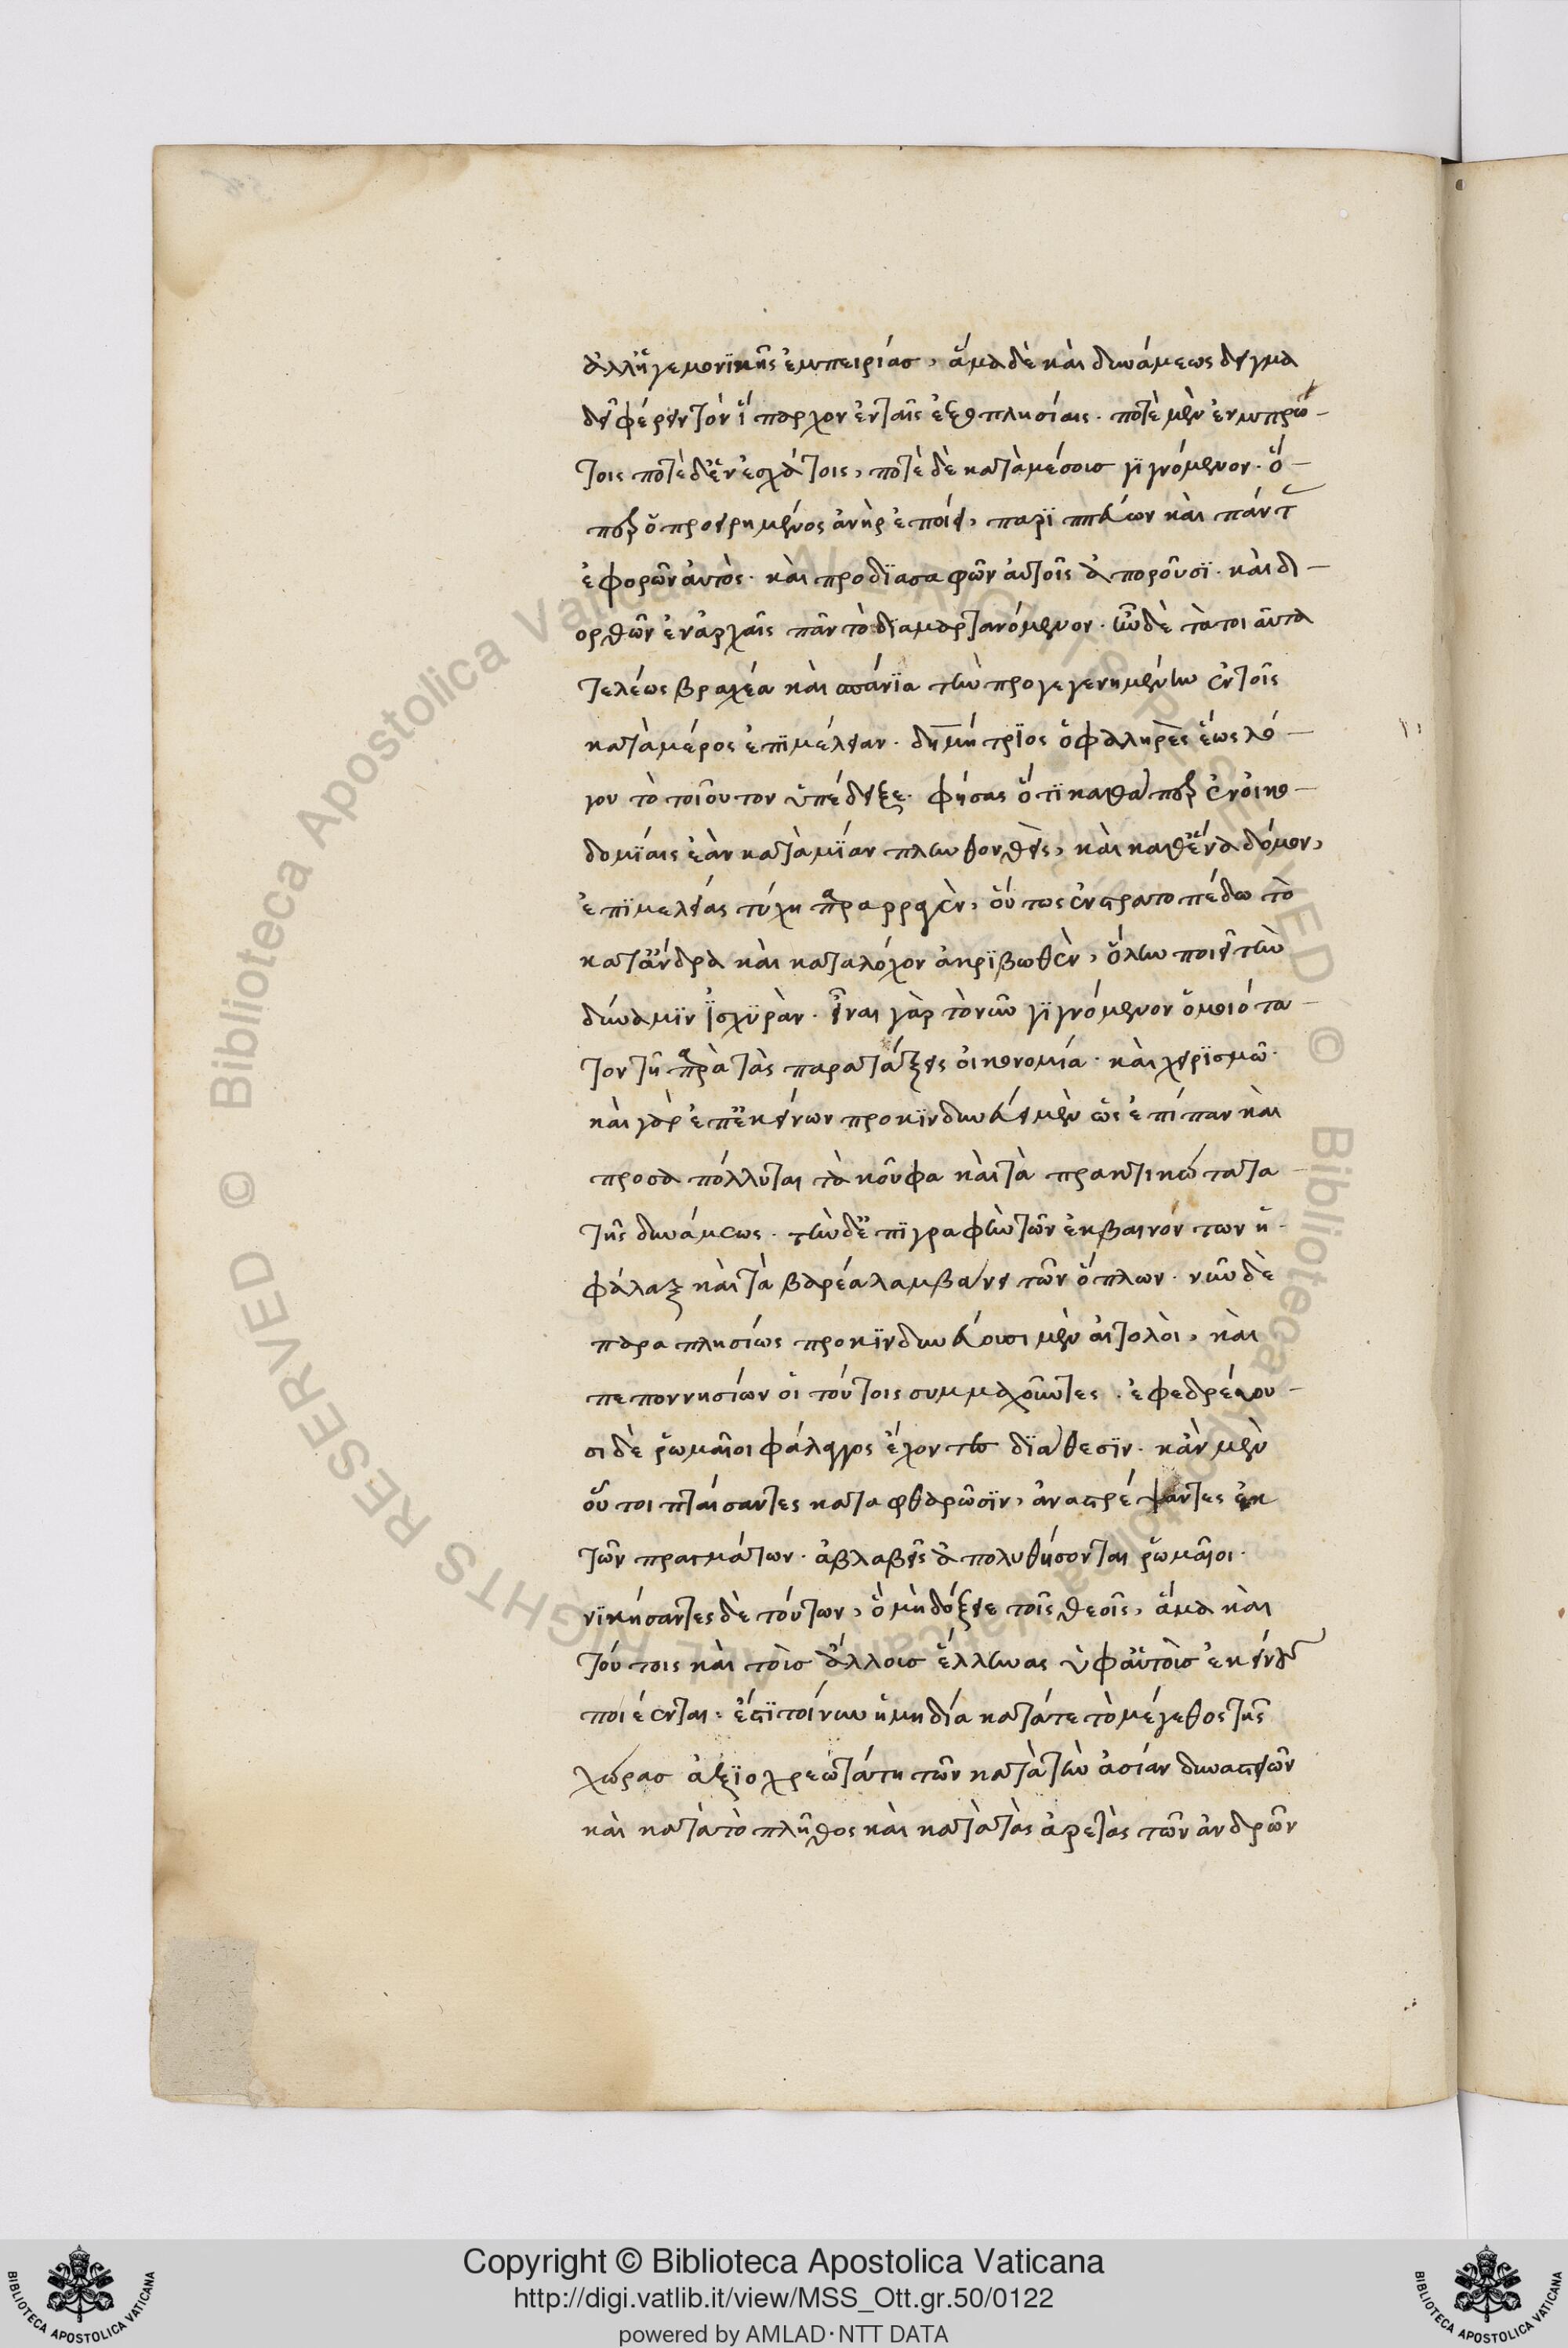 ἀλλ' ἡγεμονϊκῆς ἐμπειρίασ, ἅμα δὲ καὶ δυνάμεως δεῖγμα
δεῖ φέρειν τὸν ἵππαρχον ἐν ταῖς ἐξοπλησίαις. ποτὲ μὲν ἐν πρώ-
τοις ποτὲ δ' ἐν ἐσχάτοις, ποτὲ δὲ κατὰ μέσοισ γϊγνόμενον. ὅ-
περ ὁ προειρημένος ἀνὴρ ἐποίει, παρϊππεύων καὶ πάντ
ἐφορῶν αὐτὸς. καὶ προδϊασαφῶν αὐτοῖς ἀποροῦσϊ. καὶ δι-
ορθῶν ἐν ἀρχαῖς πᾶν τὸ δϊαμαρτανόμενον. ἦν δὲ τὰ τοιαῦτα
τελέως βραχέα καὶ σπάνϊα τῶν προγεγενημένων ἐν τοῖς
κατὰ μέρος ἐπϊμέλειαν. δημήτρϊος ὁ φαληρεὺς ἕως λό-
γου τὸ τοιοῦτον ὑπέδειξε. φήσας ὅτϊ καθάπερ ἐν οἰκο-
δομϊαις ἐὰν κατὰ μϊαν πλίνθον θεὶς, καὶ καθ' ἕνα δόμον,
ἐπϊμελείας τύχη παραρραθὲν, οὕτως ἐν στρατοπέδω τὸ
κατ' ἄνδρα καὶ κατὰ λόχον ἀκρϊβωθὲν, ὅλην ποιεῖ τὴν
δύναμϊν ἰσχϋρὰν. εἶναι γὰρ τὸ νῦν γϊγνόμενον ὁμοιότα-
τον τῆ παρὰ τὰς παρατάξεις οἰκονομία. καὶ χειρϊσμῶ.
καὶ γὰρ ἐπ' ἐκείνων προκϊνδυνεύει μὲν ὡς ἐπίπαν καὶ
προσαπόλλυται τὰ κοῦφα καὶ τὰ πρακτικώτατα
τῆς δυνάμεως. τὴν δ' ἐπϊγραφὴν τῶν ἐκβαινόντων ἡ.
φάλαξ καὶ τὰ βαρέα λαμβάνει τῶν ὅπλων. νῦν δὲ
παραπλησίως προκϊνδυνεύουσι μὲν αἰτολὸι, καὶ
πεπονησίων οἱ τούτοις συμμαχοῦντες. ἐφεδρεύου-
σι δὲ ῥωμαῖοι φάλαγγος ἔχοντες δϊάθεσϊν. κἀν μὲν
οὗτοι πταίσαντες καταφθαρῶσϊν, ἀναστρέψαντες ἐκ
τῶν πραγμάτων. ἀβλαβεῖς ἀπολυθήσονται ῥωμαῖοι.
νϊκήσαντες δὲ τούτων, ὃ μὴ δόξειε τοῖς θεοῖς, ἅμα καὶ
τούτοις καὶ τὸισ ἄλλοισ ἕλληνας ὑφ' αὑτὸισ ἐκεῖνοι
ποιέονται. ἔστϊ τοίνυν ἡ μηδία κατά τε τὸ μέγεθος τῆς
χώρασ ἀξϊοχρεωτάτη τῶν κατὰ τὴν ἀσίαν δυναστειῶν
καὶ κατὰ τὸ πλῆθος καὶ κατὰ τὰς ἀρετὰς τῶν ἀνδρῶν
Copyright © Biblioteca Apostolica Vaticana
http://digi.vatlib.it/view/MSS_Ott.gr.50/0122
powered by AMLAD·NTT DATA